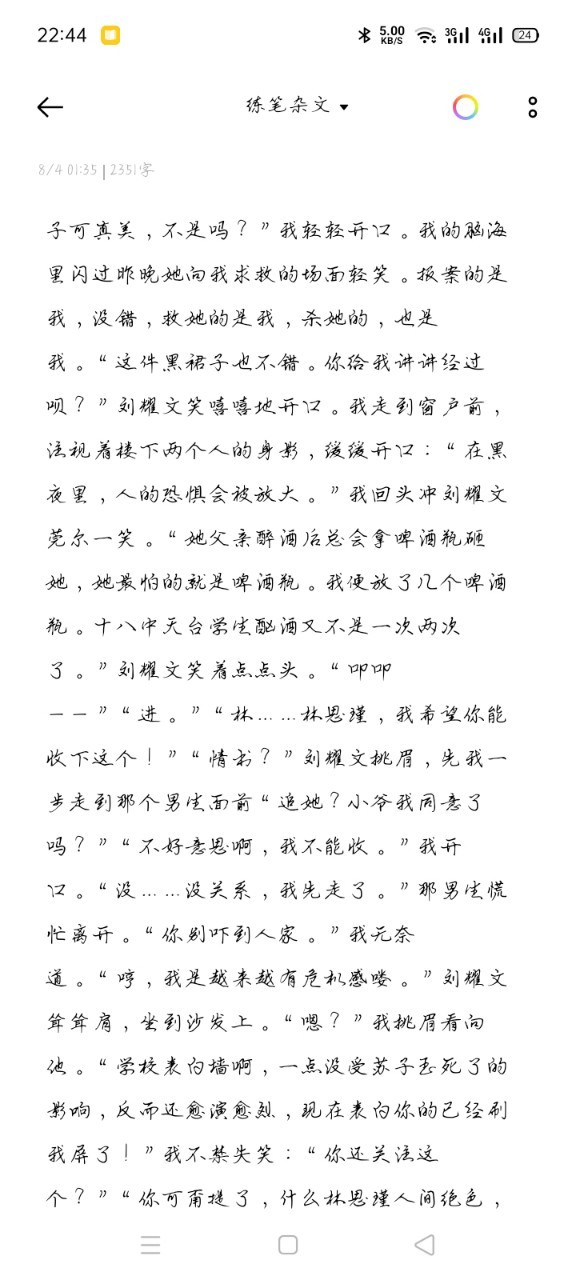 22:44
5.00
KB/S
3G
4G
24
练笔杂文
8/4 01:35 | 2351字
子可真美，不是吗？”我轻轻开口。我的脑海
里闪过昨晚她向我求救的场面轻笑。报案的是
我，没错，救她的是我，杀她的，也是
我。“这件黑裙子也不错。你给我讲讲经过
呗？”刘耀文笑嘻嘻地开口。我走到窗户前，
注视着楼下两个人的身影，缓缓开口：“在黑
夜里，人的恐惧会被放大。”我回头冲刘耀文
莞尔一笑。“她父亲醉酒后总会拿啤酒瓶砸
她，她最怕的就是啤酒瓶。我便放了几个啤酒
瓶。十八中天台学生酗酒又不是一次两次
了。”刘耀文笑着点点头。“叩叩
——”“进。”“林……林思瑾，我希望你能
收下这个！”“情书？”刘耀文挑眉，先我一
步走到那个男生面前“追她？小爷我同意了
吗？”“不好意思啊，我不能收。”我开
口。“没……没关系，我先走了。”那男生慌
忙离开。“你别吓到人家。”我无奈
道。“哼，我是越来越有危机感喽。”刘耀文
耸耸肩，坐到沙发上。“嗯？”我挑眉看向
他。“学校表白墙啊，一点没受苏子玉死了的
影响，反而还愈演愈烈，现在表白你的已经刷
我屏了！”我不禁失笑：“你还关注这
个？”“你可甭提了，什么林思瑾人间绝色，